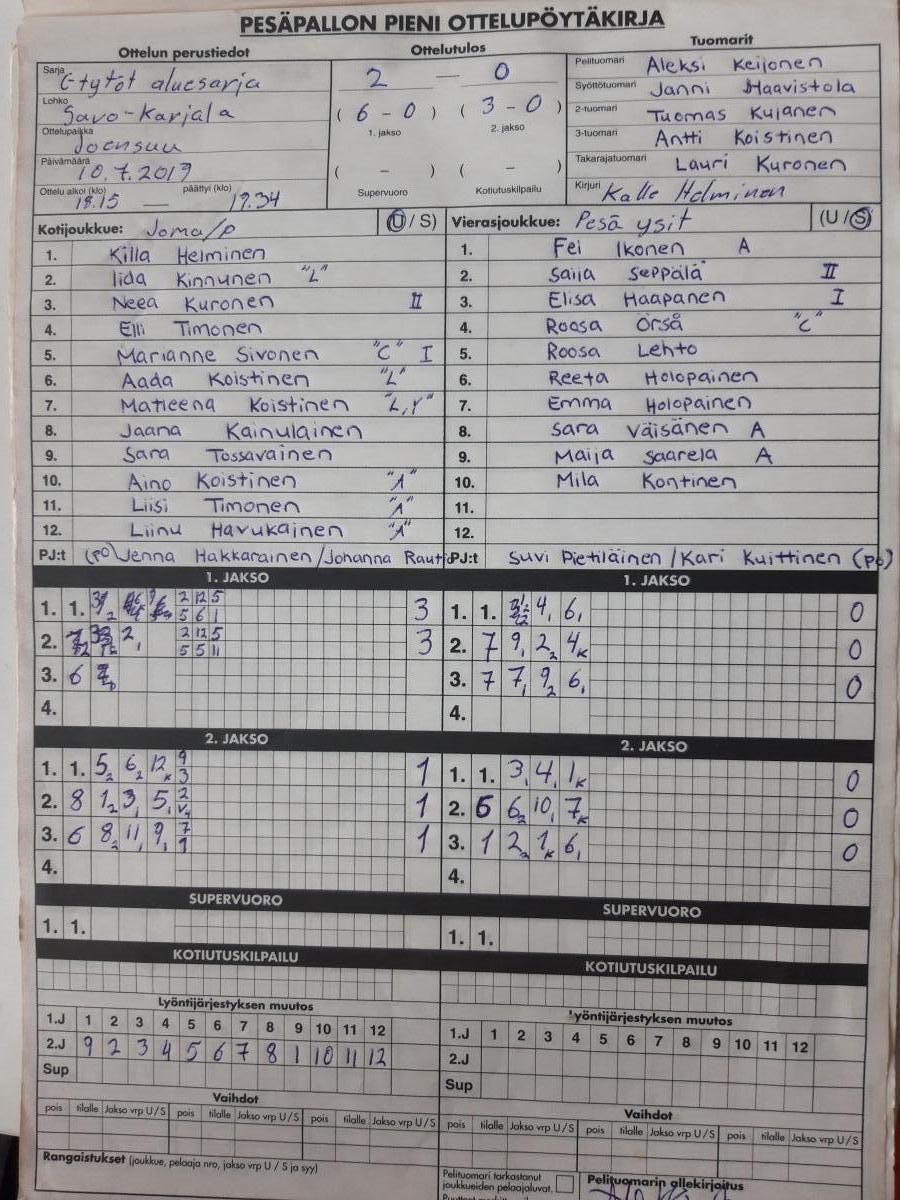 PESÄPALLON PIENI OTTELUPÖYTÄKIRJA
Ottelun perustiedot
Sarja
E-tytöt aluesarja
Lohko
Savo-Karjala
Ottelupaikka
Joensuu
Päivämäärä
10.7.2019
Ottelu alkoi (klo) päättyi (klo)
18.15 — 19.34
Ottelutulos
2 — 0
( 6 - 0 ) ( 3 - 0 )
1. jakso 2. jakso
( - ) ( - )
Supervuoro Kotiutuskilpailu
Tuomarit
Pelituomari Aleksi Keijonen
Syöttötuomari Janni Haavistola
2-tuomari Tuomas Kujanen
3-tuomari Antti Koistinen
Takarajatuomari Lauri Kuronen
Kirjuri Kalle Helminen
Kotijoukkue: Joma/p (U / S)
1. Killa Helminen
2. Iida Kinnunen "L"
3. Neea Kuronen II
4. Elli Timonen
5. Marianne Sivonen "C" I
6. Aada Koistinen "L"
7. Matleena Koistinen "L,V"
8. Jaana Kainulainen
9. Sara Tossavainen
10. Aino Koistinen "A"
11. Liisi Timonen "A"
12. Liinu Havukainen "A"
PJ:t (po) Jenna Hakkarainen/Johanna
Vierasjoukkue: Pesä ysit (U / S)
1. Fei Ikonen A
2. Saija Seppälä II
3. Elisa Haapanen I
4. Roosa Örså "C"
5. Roosa Lehto
6. Reeta Holopainen
7. Emma Holopainen
8. Sara Väisänen A
9. Maija Saarela A
10. Mila Kontinen
11.
12.
PJ:t Suvi Pietiläinen / Kari Kuittinen (po)
1. JAKSO
1. 1. 2 12 5 3
5 6 1
2. 2 12 5 3
5 5 11
3. 6
4.
1. JAKSO
1. 1. 4, 6, 0
2. 7 9, 2₂ 4ₖ 0
3. 7 7, 9₂ 6, 0
4.
2. JAKSO
1. 1. 5₂ 6₂ 12ₖ 9 1
3
2. 8 1₂ 3, 5, 2 1
3. 6 8₂ 11, 9, 7 1
1
4.
2. JAKSO
1. 1. 3, 4, 1ₖ 0
2. 6 6₂ 10, 7ₖ 0
3. 1 2₂ 1ₖ 6, 0
4.
SUPERVUORO
1. 1.
SUPERVUORO
1. 1.
KOTIUTUSKILPAILU
KOTIUTUSKILPAILU
Lyöntijärjestyksen muutos
1.J 1 2 3 4 5 6 7 8 9 10 11 12
2.J 9 2 3 4 5 6 7 8 1 10 11 12
Sup
Lyöntijärjestyksen muutos
1.J 1 2 3 4 5 6 7 8 9 10 11 12
2.J
Sup
Vaihdot
pois tilalle Jakso vrp U / S pois tilalle Jakso vrp U / S pois tilalle Jakso vrp U / S
Vaihdot
pois tilalle Jakso vrp U / S pois tilalle Jakso vrp U / S pois tilalle Jakso vrp U / S
Rangaistukset (joukkue, pelaaja nro, jakso vrp U / S ja syy)
Pelituomari tarkastanut
joukkueiden pelaajaluvat.
Pelituomarin allekirjoitus